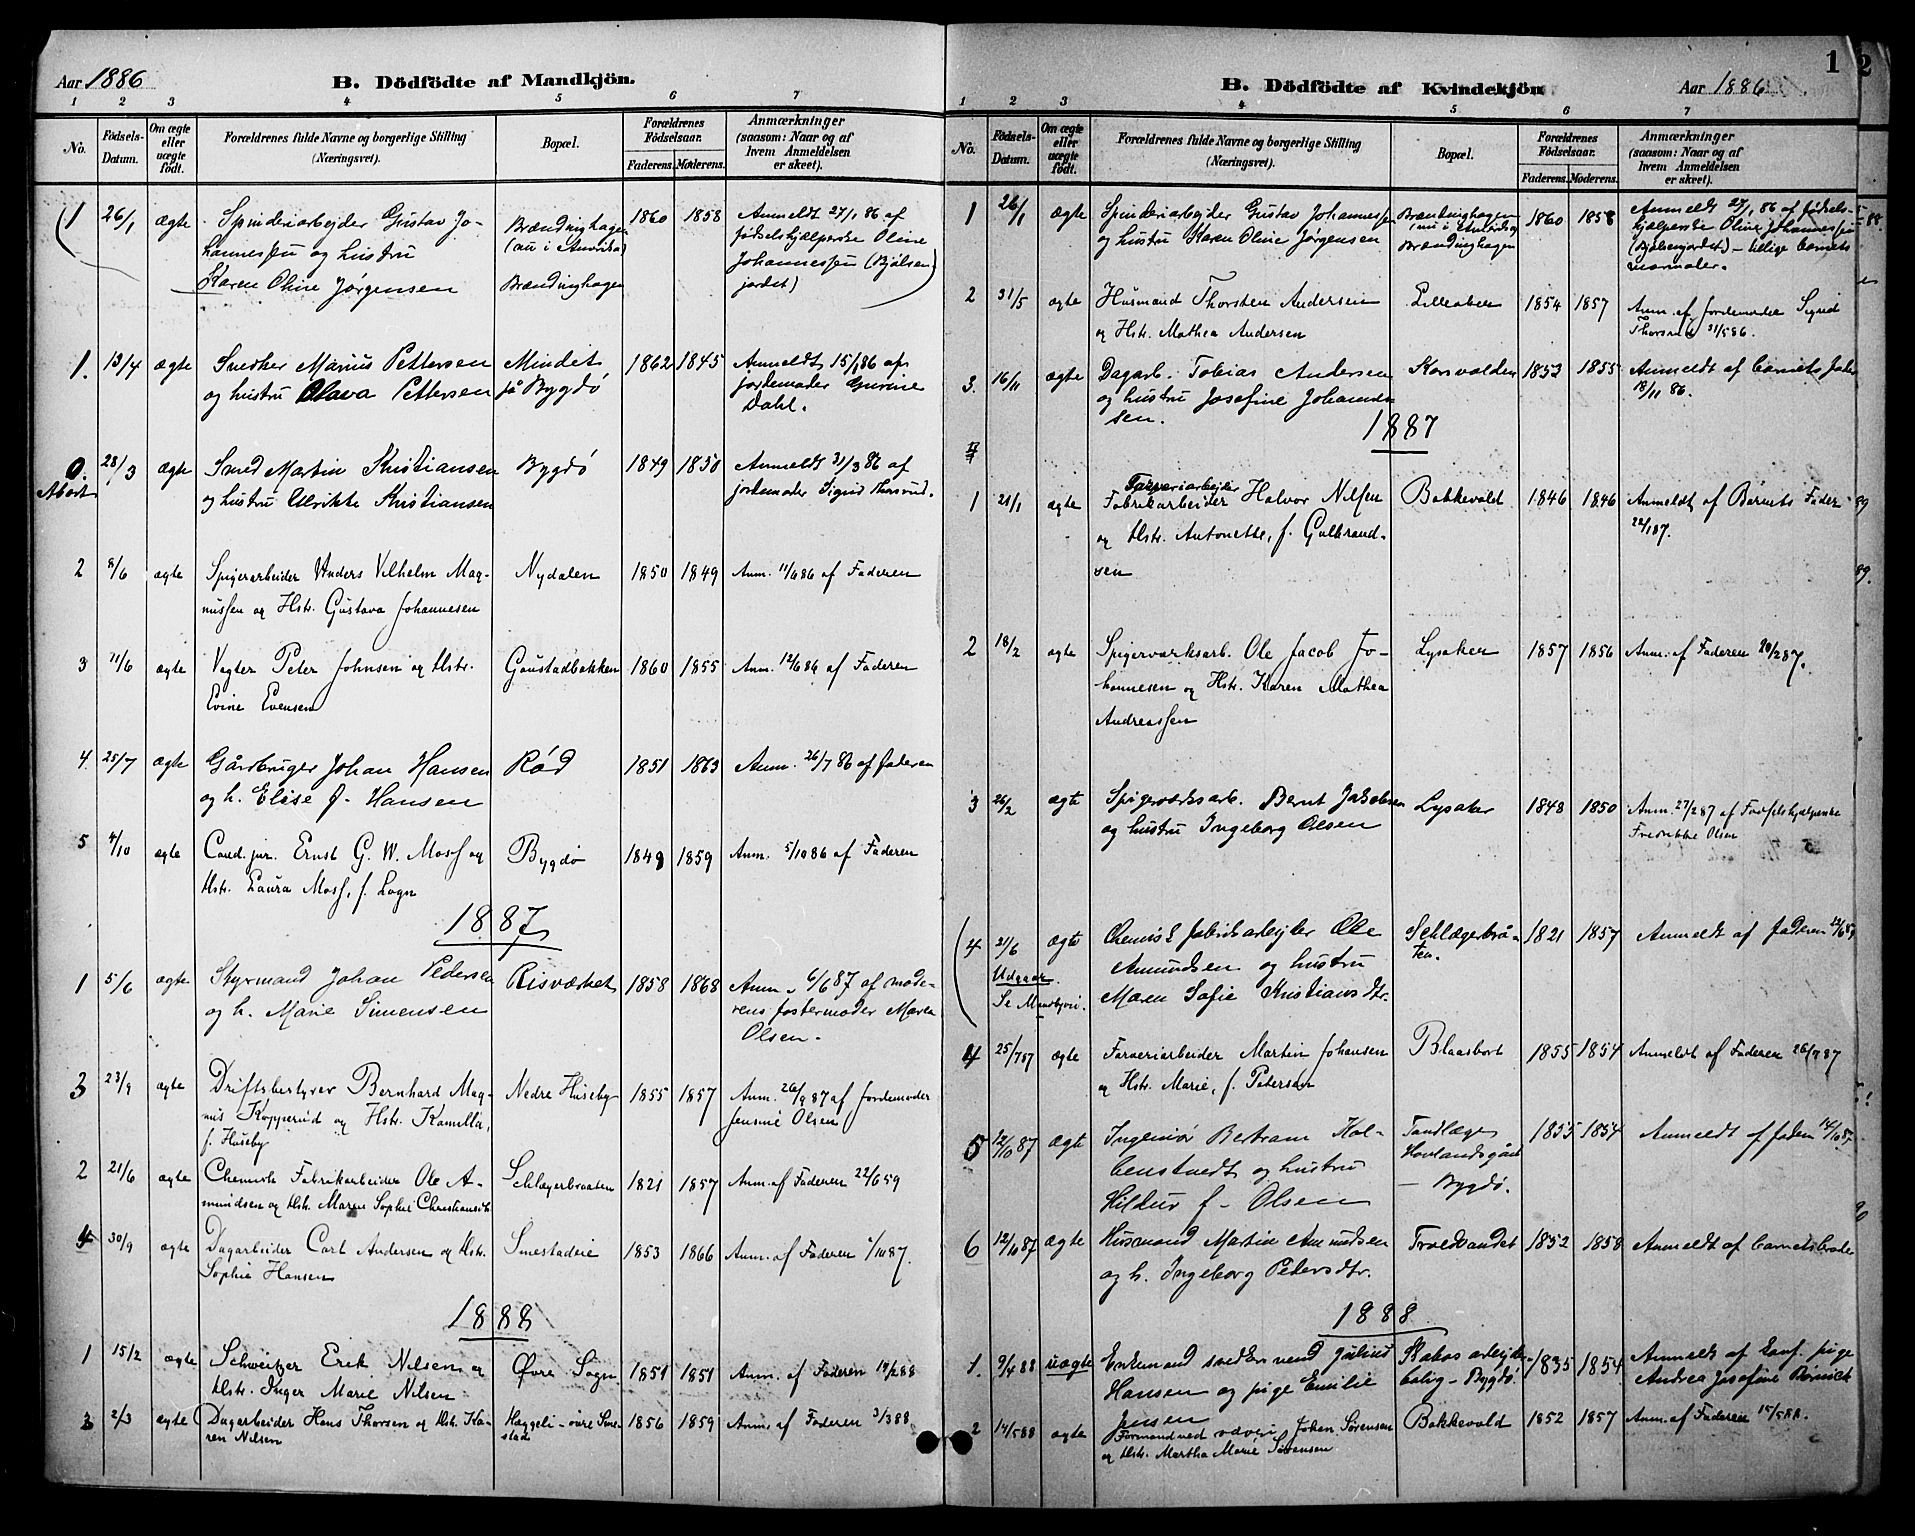 Aar 1886
B. Dödfödte af Mandkjön.
1 2 3 4 5 6 7
No.
Födsels-Datum.
Om ægte eller uægte födt.
Forældrenes fulde Navne og borgerlige Stilling (Næringsvei).
Bopæl.
Forældrenes Födselsaar.
Faderens. Moderens.
Anmærkninger (saasom: Naar og af hvem Anmeldelsen er skeet).
1 26/1 ægte Spinderiarbejder Gustav Jo- Brændinghagen 1860 1858 Anmeldt 27/1 86 af
hannessen og hustru fødselshjælperske Oline
Karen Oline Jørgensen Brændinghagen Johannessen (Bjølsen
jordet)
1. 13/4 ægte Snedker Marius Pettersen Mindet 1862 1845 Anmeldt 15/4 86 af
og hustru Olava Pettersen på Bygdø jordemoder Gurine
Dahl.
0. 28/3 ægte Smed Martin Kristiansen Bygdø 1849 1850 Anmeldt 31/3 86 af
Abort og hustru Ulrikke Kristiansen jordemoder Sigrid Thorsrud.
2 8/6 ægte Spigerarbeider Anders Vilhelm Mag- Nydalen 1850 1849 Anm. 11/6 86 af Faderen
nussen og Hstr. Gustava Johannesen
3 11/6 ægte Vagter Peter Johnsen og Hstr. Gaustadbakken 1860 1855 Anm. 12/6 86 af Faderen
Evine Evensen
4. 25/7 ægte Gårdbruger Johan Hansen Rød 1851 1863 Anm. 26/7 86 af faderen
og h. Elise f. Hansen
5 4/10 ægte Cand. jur. Ernst G. W. Moss og Bygdø 1849 1859 Anm. 5/10 86 af Faderen
Hstr. Laura Moss, f. Logn
1887
1 5/6 ægte Styrmand Johan Pedersen Risværket 1858 1868 Anm. 6/6 87 af mode-
og h. Marie Simensen rens fostermoder Maren
Olsen.
3 23/9 ægte Driftsbestyrer Bernhard Mag- Nedre Huseby 1855 1857 Anm. 26/9 87 af Jordemoder
nus Kopperud og Hstr. Kamilla, Jensine Olsen
f. Huseby
2 21/6 ægte Chemisk Fabrikarbeider Ole A- Schlægerbraaten 1821 1857 Anm. af Faderen 22/6 59
mundsen og Hstr. Maren Sophie Christiansdt.
4 30/9 ægte Dagarbeider Carl Andersen og Hstr. Smestadeie 1853 1866 Anm. af Faderen 1/10 87.
Sophie Hansen
1888
1 15/2 ægte Schweitzer Erik Nilsen og Øvre Sogn 1851 1851 Anm. af Faderen 19/2 88
Hstr. Inger Marie Nilsen
3 2/3 ægte Dagarbeider Hans Thorsen og Hstr. Ka- Haggeli - øvre Sme- 1856 1859 Anm. af Faderen 3/3 88
ren Nilsen stad
B. Dödfödte af Kvindekjön
Aar 1886
1
2
1 2 3 4 5 6 7
No.
Födsels-Datum.
Om ægte eller uægte födt.
Forældrenes fulde Navne og borgerlige Stilling (Næringsvei).
Bopæl.
Forældrenes Födselsaar.
Faderens. Moderens.
Anmærkninger (saasom: Naar og af hvem Anmeldelsen er skeet).
1 26/1 ægte Spinderiarbejder Gustav Johannessen Brændinghagen 1860 1858 Anmeldt 27/1 86 af fødsels-
og hustru Karen Oline Jørgensen Brændinghagen hjælperske Oline Johannessen
(Bjølsenjordet) - tillige barnets
mormoder.
2 31/5 ægte Husmand Thorsten Andersen Lilleaker 1854 1857 Anm. af Jordemoder Sigrid
og Hstr. Mathea Andersen Thorsrud 31/5 86.
3. 16/11 ægte Dagarb. Tobias Andersen Korsvolden 1853 1855 Anmeldt af barnets fader
og hustru Josefine Johanne- 18/11 86.
sen.
1887
1 21/1 ægte Farveriarbejder
Fabrikarbeider Halvor Nilsen Bakkevold 1846 1846 Anmeldt af Barnets Fader
og Hstr. Antonette, f. Gulbrand- 22/1 87.
sen
2 18/2 ægte Spigerværksarb. Ole Jacob Jo- Lysaker 1857 1856 Anm. af Faderen 20/2 87.
hannesen og Hstr. Karen Mathea
Andreassen
3 26/2 ægte Spigerværksarb. Bernt Jakobsen Lysaker 1848 1850 Anm. 27/2 87 af Fødselshjælperske
og hustru Ingeborg Olsen Fredrikke Olsen
4 21/6 ægte Chemisk fabrikarbejder Ole Schlægerbrå- 1821 1857 Anmeldt af faderen 22/6 59
Udgaar Amundsen og hustru ten.
Se Mandkjøn. Maren Sofie Kristiansdtr.
4 25/7 87 ægte Farveriarbeider Martin Johansen Blaasbort 1855 1854 Anmeldt af Faderen 26/7 87
og Hstr. Marie, f. Petersen
5 12/10 87 ægte Ingeniør Bertram Hol- Tandlæge 1855 1854 Anmeldt af faderen 14/10 87.
benstvedt og hustru Hovlandsgård
Hildur f. Olsen - Bygdø.
6 12/11 87 ægte Husmand Martin Amundsen Troldvandet 1852 1858 Anmeldt af barnets broder
og h. Ingeborg Pedersdtr.
1888
1. 9/4 88 uægte Enkemand svedkersvend Julius 1835 1854 Anmeldt af pige
Hansen og pige Emilie bolig - Bygdø. Andrea Josefine
Jensen
2 14/5 88 ægte Formand ved Johan Sørensen Bakkevold 1852 1857 Anm. af Faderen 15/5 88.
og Hstr. Martha Marie Sørensen